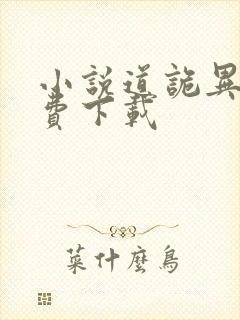 小説道詭異
費下載
菜什麼鳥